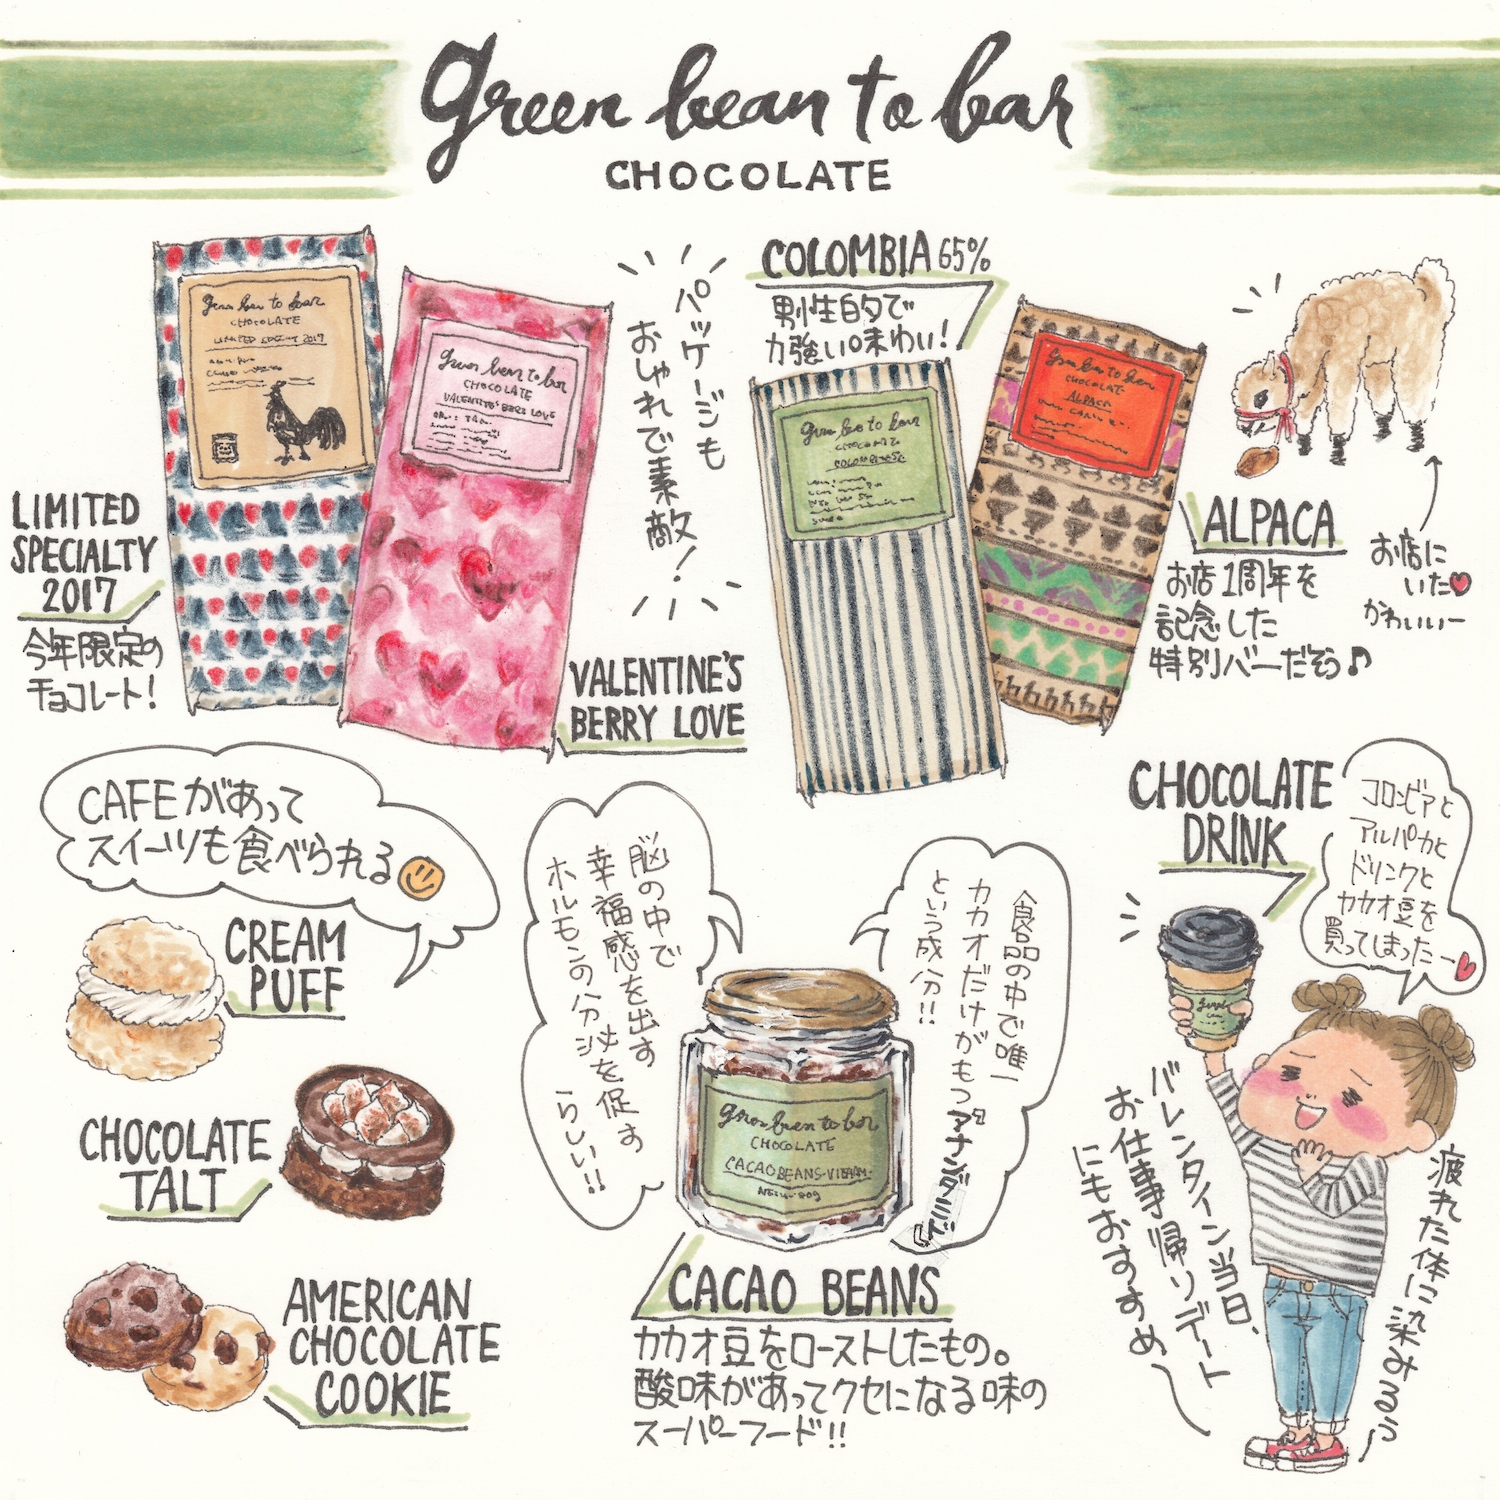 green bean to bar
CHOCOLATE
green bean to bar
CHOCOLATE
LIMITED SPECIALTY 2017
green bean to bar
CHOCOLATE
VALENTINE'S BERRY LOVE
LIMITED
SPECIALTY
2017
今年限定の
チョコレート！
パッケージも
おしゃれで素敵！
VALENTINE'S
BERRY LOVE
COLOMBIA 65%
男性的で
力強い味わい！
green bean to bar
CHOCOLATE
green bean to bar
CHOCOLATE
ALPACA
ALPACA
お店1周年を
記念した
特別バーだそう♪
お店に
いた♥
かわいいー
CAFEがあって
スイーツも食べられる
CREAM
PUFF
CHOCOLATE
TALT
AMERICAN
CHOCOLATE
COOKIE
脳の中で
幸福感を出す
ホルモンの分泌を促す
らしい!!
食品の中で唯一
カカオだけがもつアナンダミド
という成分!!
green bean to bar
CHOCOLATE
CACAO BEANS
CACAO BEANS
カカオ豆をローストしたもの。
酸味があってクセになる味の
スーパーフード!!
CHOCOLATE
DRINK
コロンビアと
アルパカと
ドリンクと
カカオ豆を
買ってしまったー♥
バレンタイン当日、
お仕事帰りデート
にもおすすめ〜
疲れた体に染みるぅ〜